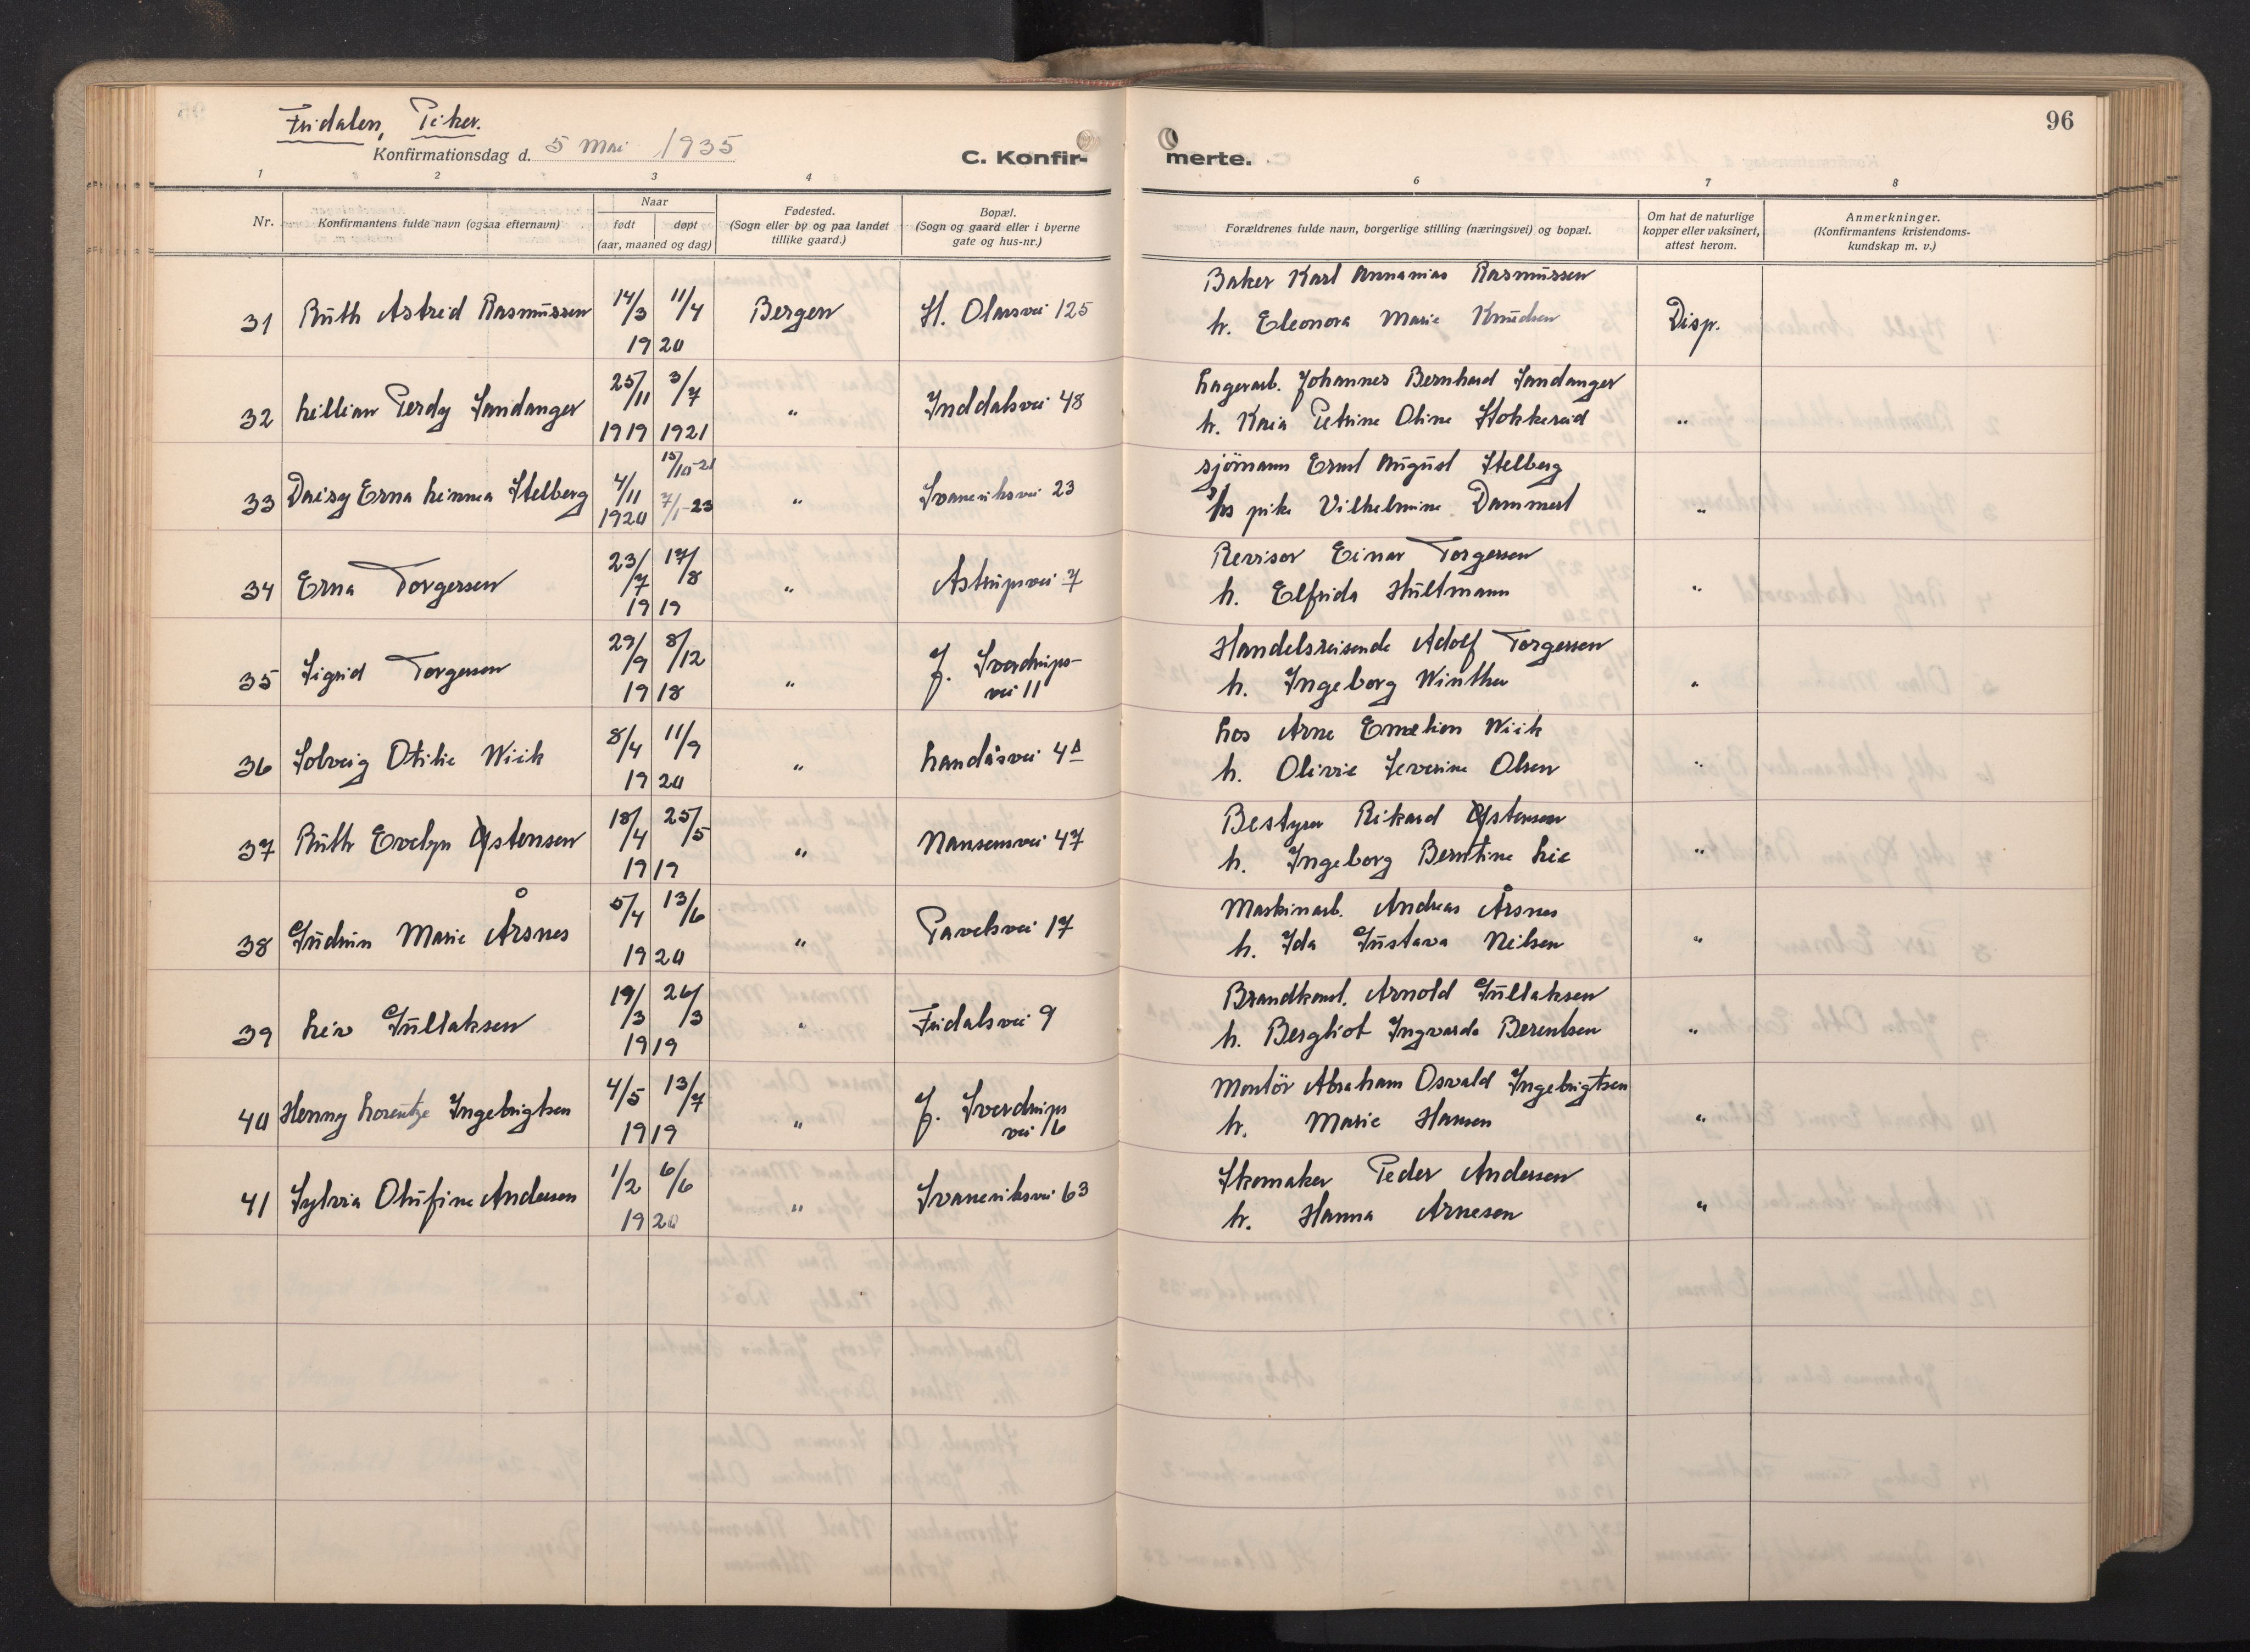 Fridalen, Piker.
Konfirmationsdag d. 5 Mai 1935
C. Konfir- merte.
96
1 2 3 4 6 7 8
Nr.
Konfirmantens fulde navn (ogsaa efternavn)
Naar
født døpt
(aar, maaned og dag)
Fødested.
(Sogn eller by og paa landet
tillike gaard.)
Bopæl.
(Sogn og gaard eller i byerne
gate og hus-nr.)
Forældrenes fulde navn, borgerlige stilling (næringsvei) og bopæl.
Om hat de naturlige
kopper eller vaksinert,
attest herom.
Anmerkninger.
(Konfirmantens kristendoms-
kundskap m. v.)
Baker Karl Annanias Rasmussen
31 Ruth Astrid Rasmussen 14/3 11/4 Bergen H. Olavsvei 125 h. Eleonora Marie Knudsen Disp.
19 20
25/11 3/7 Lagerarb. Johannes Bernhard Sandanger
32 Lillian Gerdy Sandanger " Inddalsvei 48 h. Kaia Petrine Oline Stokkereid "
1919 1921
15/10-21 sjømann Ernst August Stelberg
33 Daisy Erna Linnea Stelberg 4/11 7/1-23 " Svaneviksvei 23 pike Vilhelmine Dammert "
1920
23/7 17/8 Revisor Einar Torgersen
34 Erna Torgersen " Astrupsvei 7 h. Elfrida Hultmann "
19 19
29/9 8/12 Handelsreisende Adolf Torgersen
35 Sigrid Torgersen " J. Sverdrups-
vei 11 h. Ingeborg Winther "
19 18
8/4 11/9 Los Arne Emelion Wiik
36 Solveig Otilie Wiik " Landåsvei 4A h. Olivie Severine Olsen "
19 20
18/4 25/5 Bestyrer Rikard Østensen
37 Ruth Evelyn Østensen " Nansensvei 47 h. Ingeborg Berntine Lie "
19 19
5/4 13/6 Maskinarb. Andreas Årsnes
38 Gudrun Marie Årsnes " Pavelsvei 17 h. Ida Gustava Nilsen "
19 20
19/3 26/3 Brandkonst. Arnold Gullaksen
39 Liv Gullaksen " Fridalsvei 9 h. Bergliot Ingvarda Berentsen "
19 19
4/5 13/7 Montör Abraham Osvald Ingebrigtsen
40 Henny Lorentze Ingebrigtsen " J. Sverdrups
vei 16 h. Marie Hansen "
19 19
1/2 6/6 Skomaker Peder Andersen
41 Sylvia Olufine Andersen " Svaneviksvei 63 h. Hanna Arnesen "
19 20